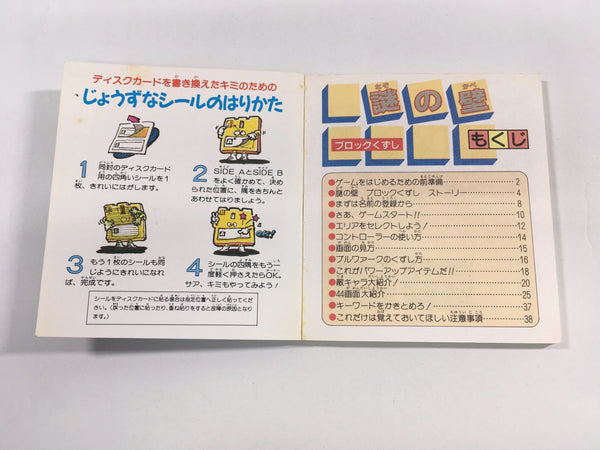 ディスクカードを書き換えたキミのための
じょうずなシールのはりかた
1 同封のディスクカード
用の四角いシールを1
枚、きれいにはがします。
2 SIDE AとSIDE B
をよく確かめて、決め
られた位置に、隅をきちんと
あわせてはりましょう。
OK!
3 もう1枚のシールも同
じようにきれいになれ
ば、完成です。
4 シールの四隅をもう一
度軽く押さえたらOK。
サア、キミもやってみよう!
シールをディスクカードに貼る場合は指定位置へ正しく貼ってくだ
さい。(誤った位置に貼ったり、重ね貼りをすると故障の原因となり
ます。)
謎の壁
なぞ かべ
ブロックくずし
もくじ
●ゲームをはじめるための前準備 2
●謎の壁 ブロックくずし ストーリー 4
●まずは名前の登録から 8
●さあ、ゲームスタート!! 10
●エリアをセレクトしよう! 12
●コントローラーの使い方 14
●画面の見方 15
●ブルファークのくずし方 16
●これがパワーアップアイテムだ!! 18
●敵キャラ大紹介! 20
●44画面大紹介 25
●キーワードをかきとめろ! 37
●これだけは覚えておいてほしい注意事項 38